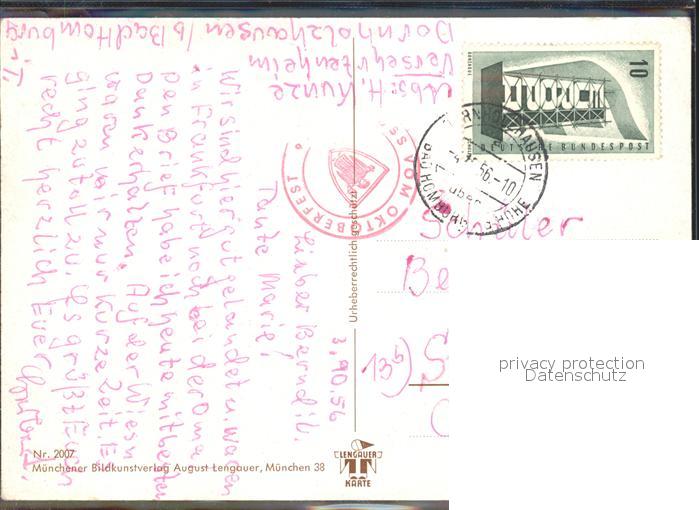 3.10.56
Lieber Bernd u.
Tante Marie!
Wir sind hier gut gelandet u. waren
in Frankfurt noch bei der Oma
Den Brief habe ich heute mit besten
Dank erhalten. Auf der Wiesn
waren wir nur kurze Zeit. Es
ging zu toll zu. Es grüßt Euch
recht herzlich Euer
i. T.
Abs: H. Kunze
Versehrtenheim
Dornholzhausen / b Bad Homburg
Nr. 2007
Münchener Bildkunstverlag August Lengauer, München 38
LENGAUER
KARTE
Urheberrechtlich geschützt
VOM OKTOBERFEST
10
EUROPA
DEUTSCHE BUNDESPOST
DORNHOLZHAUSEN
56-10
über
BAD HOMBURG
Schäler
Be
13b) S
privacy protection
Datenschutz